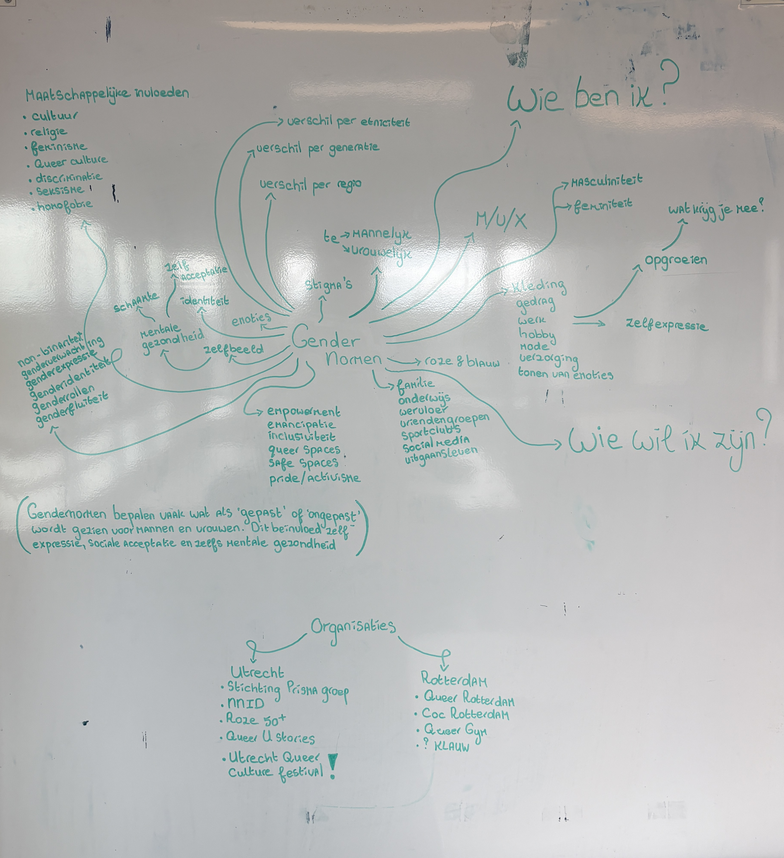 Maatschappelijke invloeden
• cultuur
• religie
• feminisme
• Queer culture
• discriminatie
• seksisme
• homofobie
→ verschil per etniciteit
verschil per generatie
verschil per regio
te → Mannelyk
↘ vrouwelyk
Stigma's
Wie ben ik?
M/V/X
→ Masculiniteit
→ feminiteit
wat krijg je mee?
opgroeien
zelfexpressie
kleding
gedrag
werk
hobby
mode
verzorging
tonen van emoties
zelf
acceptatie
schaamte
identiteit
mentale
gezondheid
emoties
zelfbeeld
Gender
Normen
→ roze & blauw
non-binariteit
genderverwachting
genderexpressie
genderidentiteit
genderrollen
genderfluiteit
empowerment
emancipatie
inclusiviteit
queer spaces
safe spaces
pride/activisme
familie
onderwijs
werkvloer
vriendengroepen
sportclubs
social media
uitgaansleven
Wie wil ik zijn?
(Gendernormen bepalen vaak wat als 'gepast' of 'ongepast'
wordt gezien voor mannen en vrouwen. Dit beïnvloed zelf-
expressie, sociale acceptatie en zelfs mentale gezondheid)
Organisaties
Utrecht
• Stichting Prisma groep
• NNID
• Roze 50+
• Queer U stories
• Utrecht Queer
Culture festival!
Rotterdam
• Queer Rotterdam
• Coc Rotterdam
• Queer Gym
• ? KLAUW